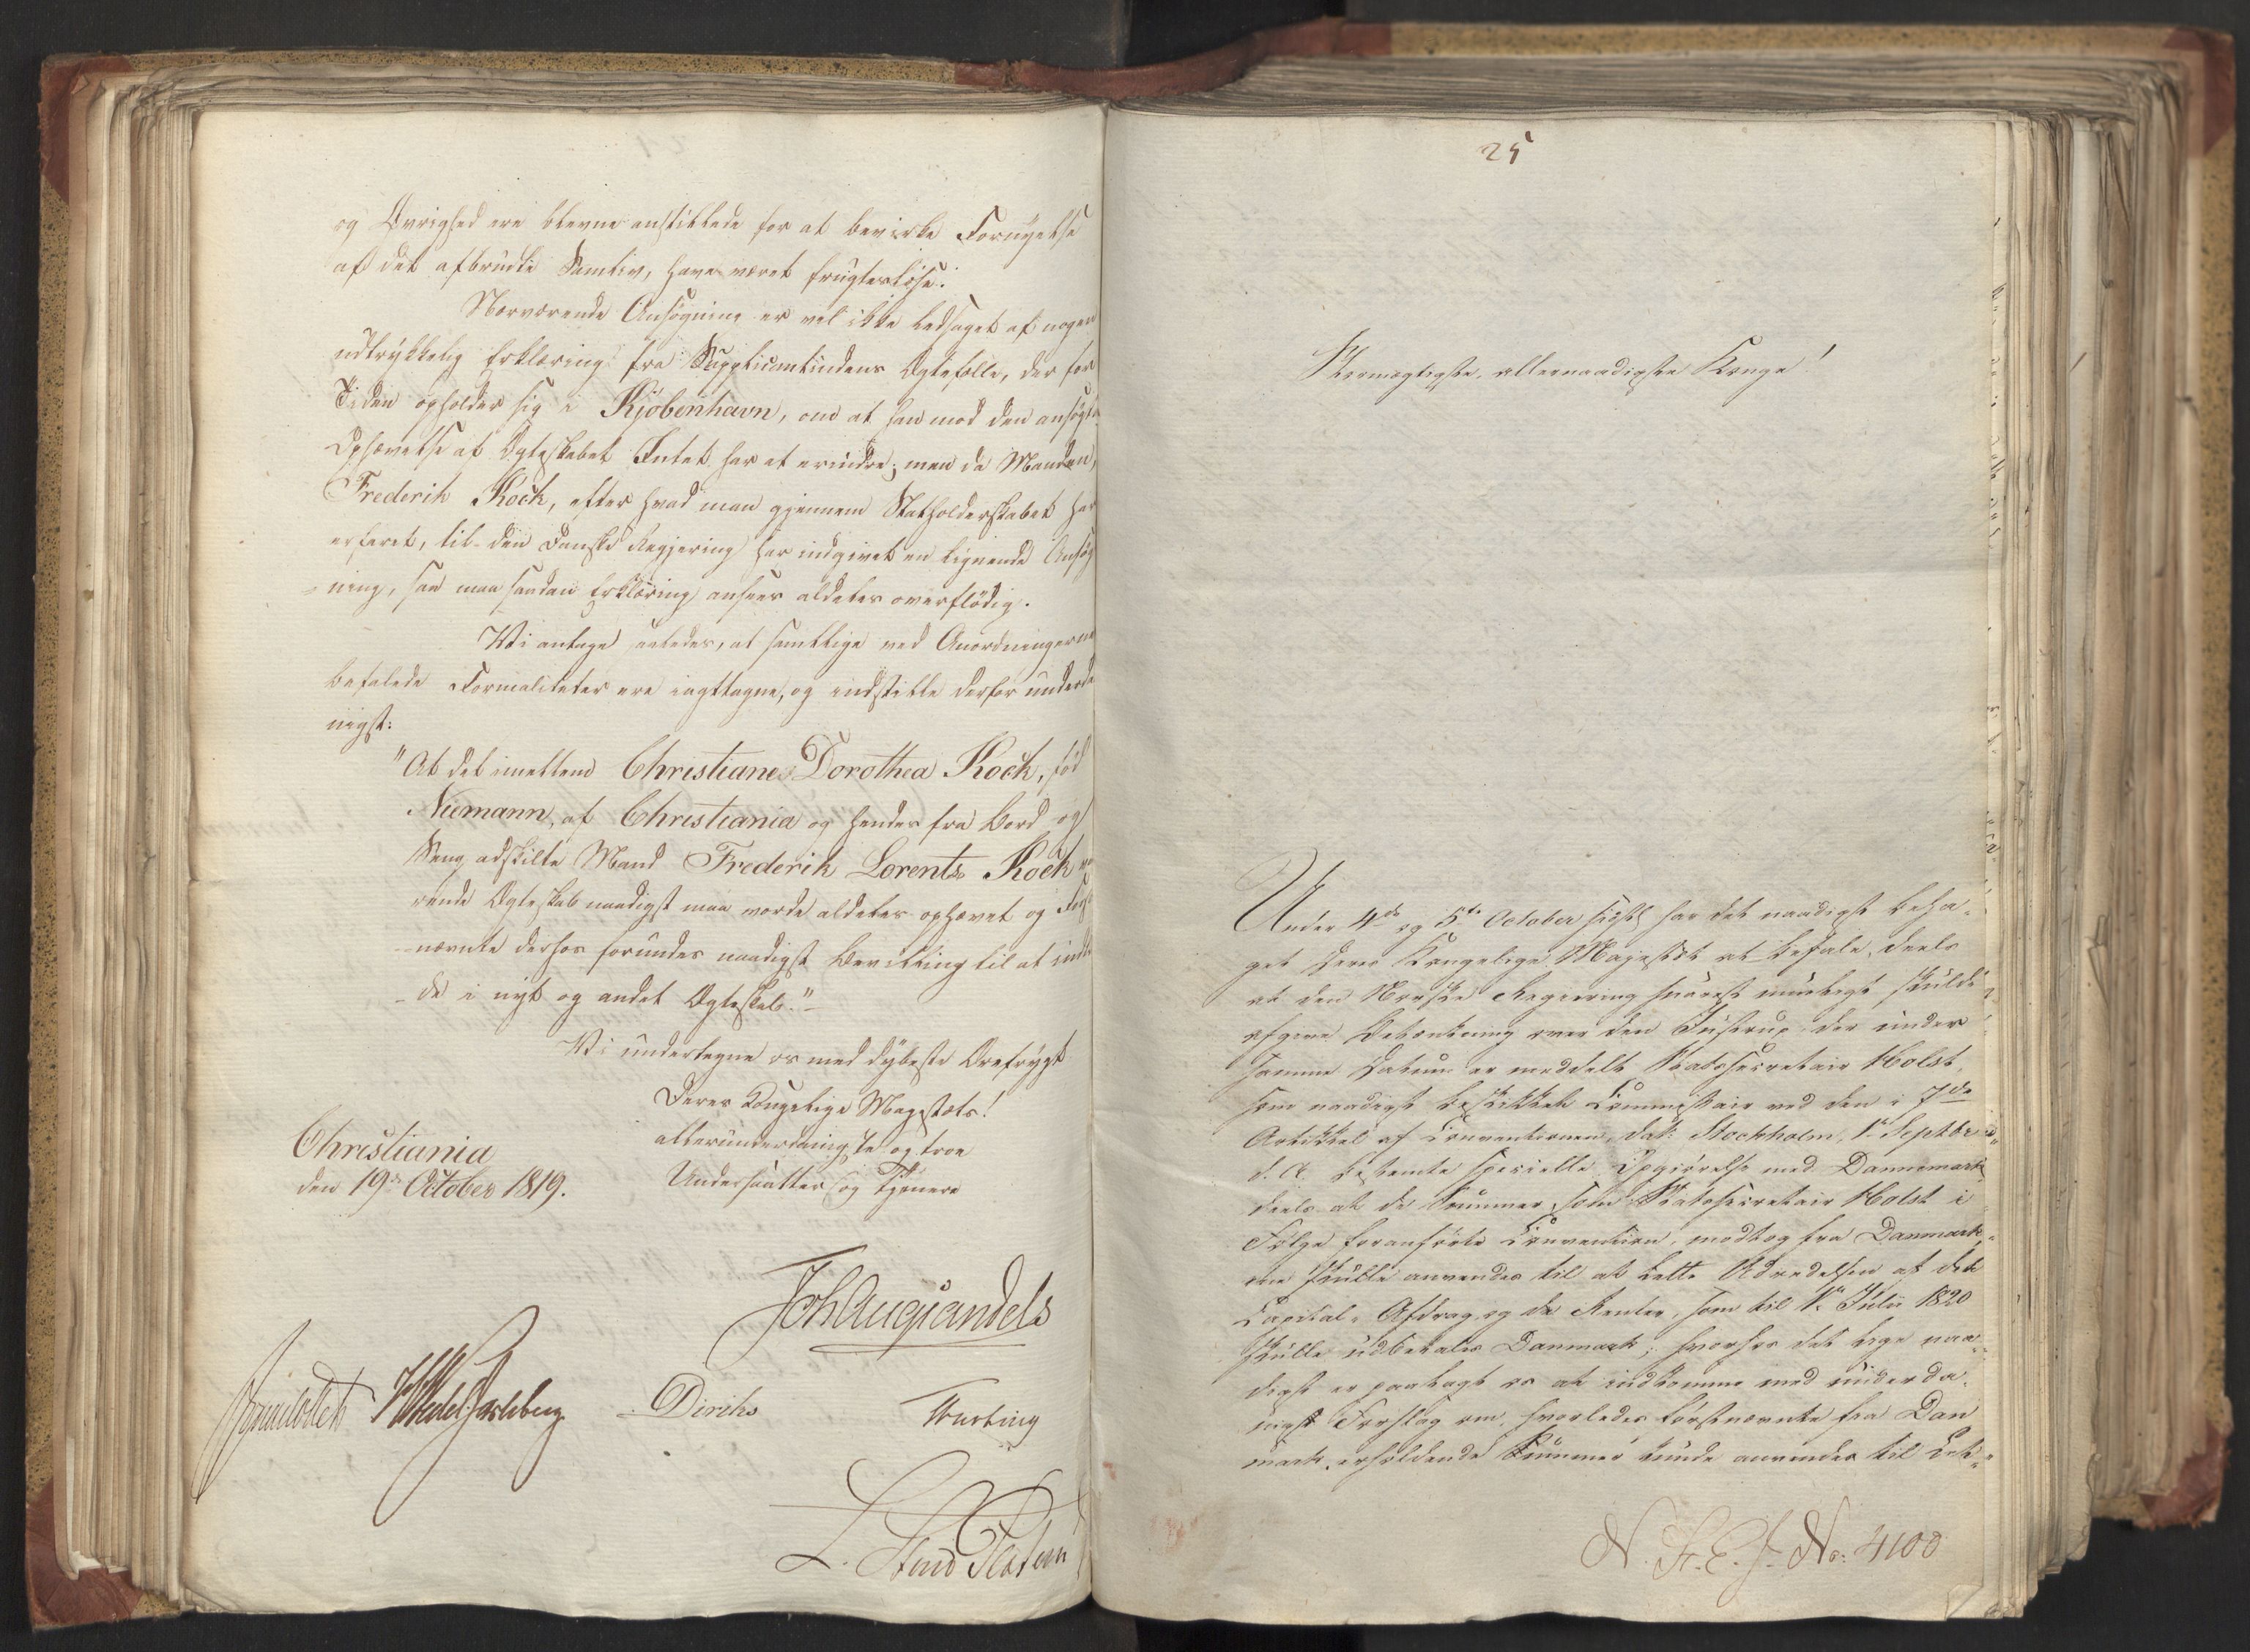 og Øvrighed ere blevne anstillede for at bevirke Fornyelse
af det afbrudte Samliv, have været frugtesløse.
Nærværende Ansøgning er vel ikke ledsaget af nogen
udtrykkelig Erklæring fra Supplicantindens Ægtefælle, der for
Tiden opholder sig i Kjöbenhavn, om at han mod den ansøgte
Ophævelse af Ægteskabet Intet har at erindre; men da Manden,
Frederik Kock, efter hvad man gjennem Statholderskabet har
erfaret, til den Danske Regjering har indgivet en lignende Ansøg-
-ning, saa maa saadan Erklæring ansees aldeles overflödig.
Vi antage saaledes, at samtlige ved Anordningerne
befalede Formaliteter ere iagttagne, og indstille derfor underda
nigst:
"At det imellem Christiane Dorothea Kock, föd
Niemann, af Christiania og hendes fra Bord og
Seng adskilte Mand Frederik Lorents Kock væ
rende Ægteskab naadigst maa vorde aldeles ophævet og Først
-nævnte derhos forundes naadigst Bevilling til at indtræ
-de i nyt og andet Ægteskab."
Vi undertegne os med dybeste Ærefrygt
Deres Kongelige Majestæts!
allerunderdanigste og troe
Undersaatter og Tjenere
Christiania
den 19de October 1819.
Joh Aug Sandels
HWedel Jarlsberg
Diriks
Motzfeldt
L.
25
Stormægtigste, allernaadigste Konge!
Under 4de og 5te October sidstl. har det naadigst beha-
get Deres Kongelige Majestæt at befale, deels
at den Norske Regiering snarest mueligt skulde
afgive Betænkning over den Instrux, der under
samme Datum er meddelt Statssecretair Holst,
som naadigst beskikket Commissair ved den i 7de
Artikkel af Conventionen, dat: Stockholm, 1te Septbr
d. A. bestemte specielle Opgiørelse med Dannemark,
deels at de Summer, som Statssecretair Holst i
Følge foranførte Convention, modtog fra Danmark,
skulle anvendes til at lette Udredelsen af det
Capital-Afdrag og de Renter, som til 1te Julii 1820
skulle udbetales Danmark; hvorhos det lige naa-
digst er paalagt os at indkomme med underda-
nigst Forslag om, hvorledes førstnævnte fra Dan
mark erholdende Summer kunde anvendes til Let-
N. St. E. J. No: 4100